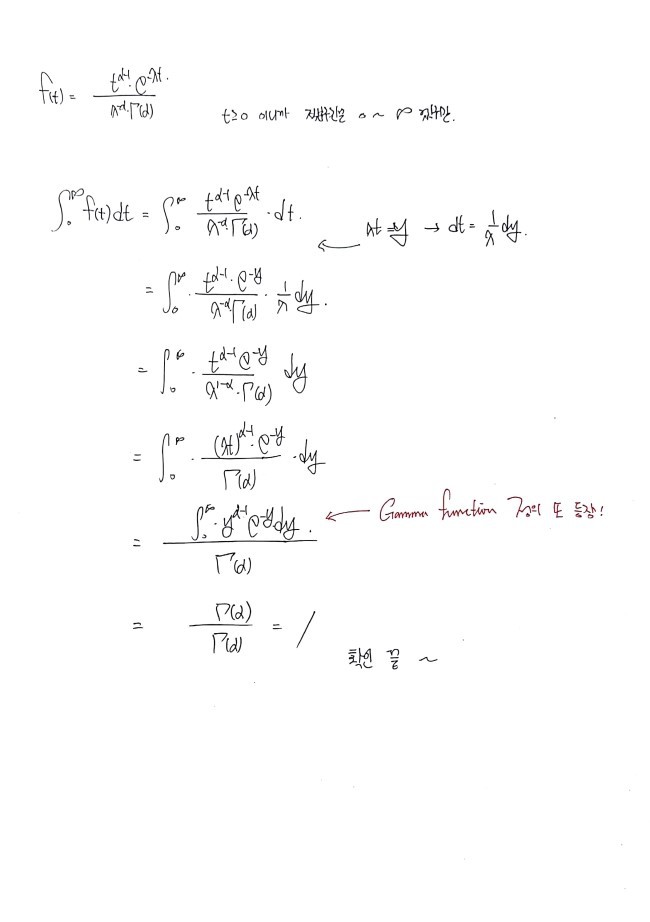 f(t) = \frac{t^{α-1} · e^{-λt}}{λ^{-α} · Γ(α)}
t≥0 이니까 적분구간은 0 ~ ∞ 겠지만.
∫_0^∞ f(t)dt = ∫_0^∞ \frac{t^{α-1} e^{-λt}}{λ^{-α} Γ(α)} · dt.
λt = y → dt = \frac{1}{λ} dy.
= ∫_0^∞ · \frac{t^{α-1} · e^{-y}}{λ^{-α} Γ(α)} · \frac{1}{λ} dy.
= ∫_0^∞ · \frac{t^{α-1} e^{-y}}{λ^{1-α} · Γ(α)} dy
= ∫_0^∞ · \frac{(λt)^{α-1} · e^{-y}}{Γ(α)} · dy
= \frac{∫_0^∞ · y^{α-1} e^{-y} dy.}{Γ(α)}
← Gamma function 정의 또 등장!
= \frac{Γ(α)}{Γ(α)} = 1
확인 끝 ~